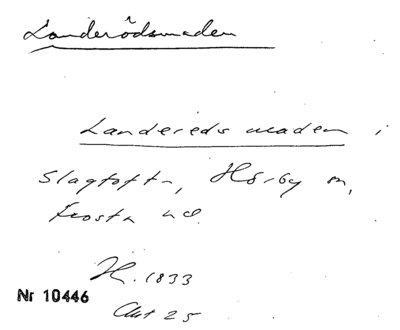 Landerödsmaden
Landereds maden i
Slagtofta, Hörby sn,
Frosta hd.
H. 1833
Nr 10446
Akt 25